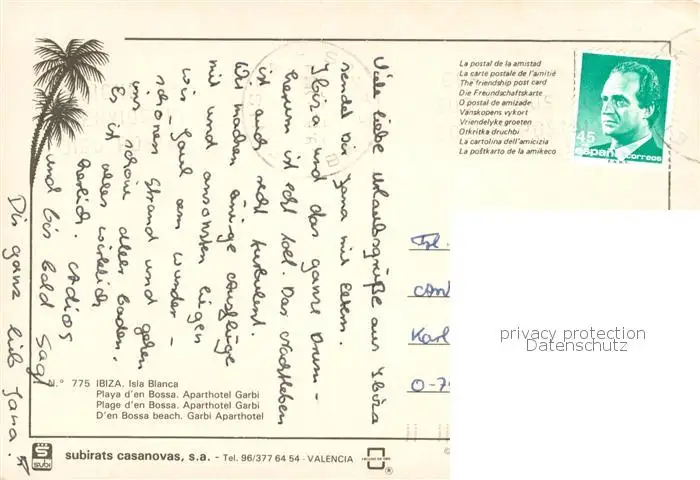 Viele liebe Urlaubsgrüße aus Ibiza
sendet Dir Jana mit Eltern.
Ibiza und das ganze Drum-
herum ist echt toll. Das Nachtleben
ist auch recht turbulent.
Wir machen einige Ausflüge
mit und ansonsten liegen
wir faul am wunder-
schönen Strand und gehen
uns schön alles baden.
Es ist alles wirklich
herrlich. Adios
und bis bald sagt
Dir ganz lieb Jana.
La postal de la amistad
La carte postale de l'amitié
The friendship post card
Die Freundschaftskarte
O postal de amizade
Vänskapens vykort
Vriendelyke groeten
Otkritka druchbi
La cartolina dell'amicizia
La poŝtkarto de la amikeco
45
españa correos
Frl.
Karl
O-7
privacy protection
Datenschutz
N.° 775 IBIZA. Isla Blanca
Playa d'en Bossa. Aparthotel Garbi
Plage d'en Bossa. Aparthotel Garbi
D'en Bossa beach. Garbi Aparthotel
subi
subirats casanovas, s.a. - Tel. 96/377 64 54 - VALENCIA
®